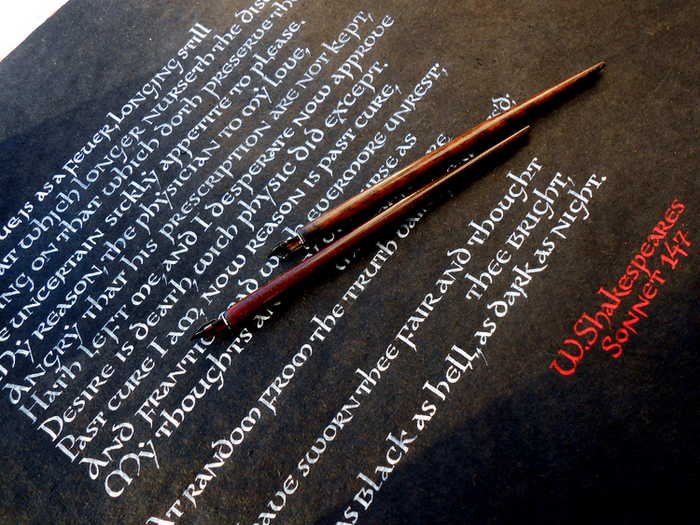 is as a fever, longing still
which longer nurseth the
on that which doth preserve
uncertain sickly appetite to please.
My reason, the physician to my love,
Angry that his prescription are not kept,
Hath left me, and I desperate now approve
Desire is death, wich physic did except.
Past cure I am, now reason is past cure,
And frantic evermore unrest;
My thoughts as
At random from the truth
sworn thee fair and thought
thee bright,
as black as hell, as dark as night.
W. Shakespeares
Sonnet 147